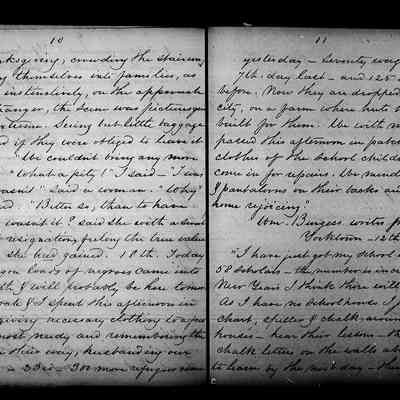 10
nksgiving, crowding the staircase,
g themselves into families, as
instinctively, on the approach
tranger, the scene was picturesque
Seeing but little baggage
d if they were obliged to leave it
We couldn't bring any more
"What a pity!" I said - "I was
said a woman. "Why?"
"Better so, than to have
wasn't it? said she with a
resignation, feeling the true value
she had gained. 18th. Today
loads of negroes came into
& I will probably be here tomor
& I spent this afternoon in
giving necessary clothing to a few
most needy and remembering the
their way, husbanding our
23rd - 300 more refugees came
11
yesterday - Seventy
7th. day last - and 125
before. Now they are dropped
city, on a farm where huts
built for them. We with
passed this afternoon in
clothes of the school children
come in for repairs. We mended
pantaloons on their backs and
home rejoicing."
Wm. Burgess writes from
Yorktown - 12th
"I have just got my school
58 scholars - the number is incre
New Years I think there will
As I have no school house I
chart, slates & chalk around
houses - hear their lessons, th
chalk letters on the walls
to learn by the next day - the